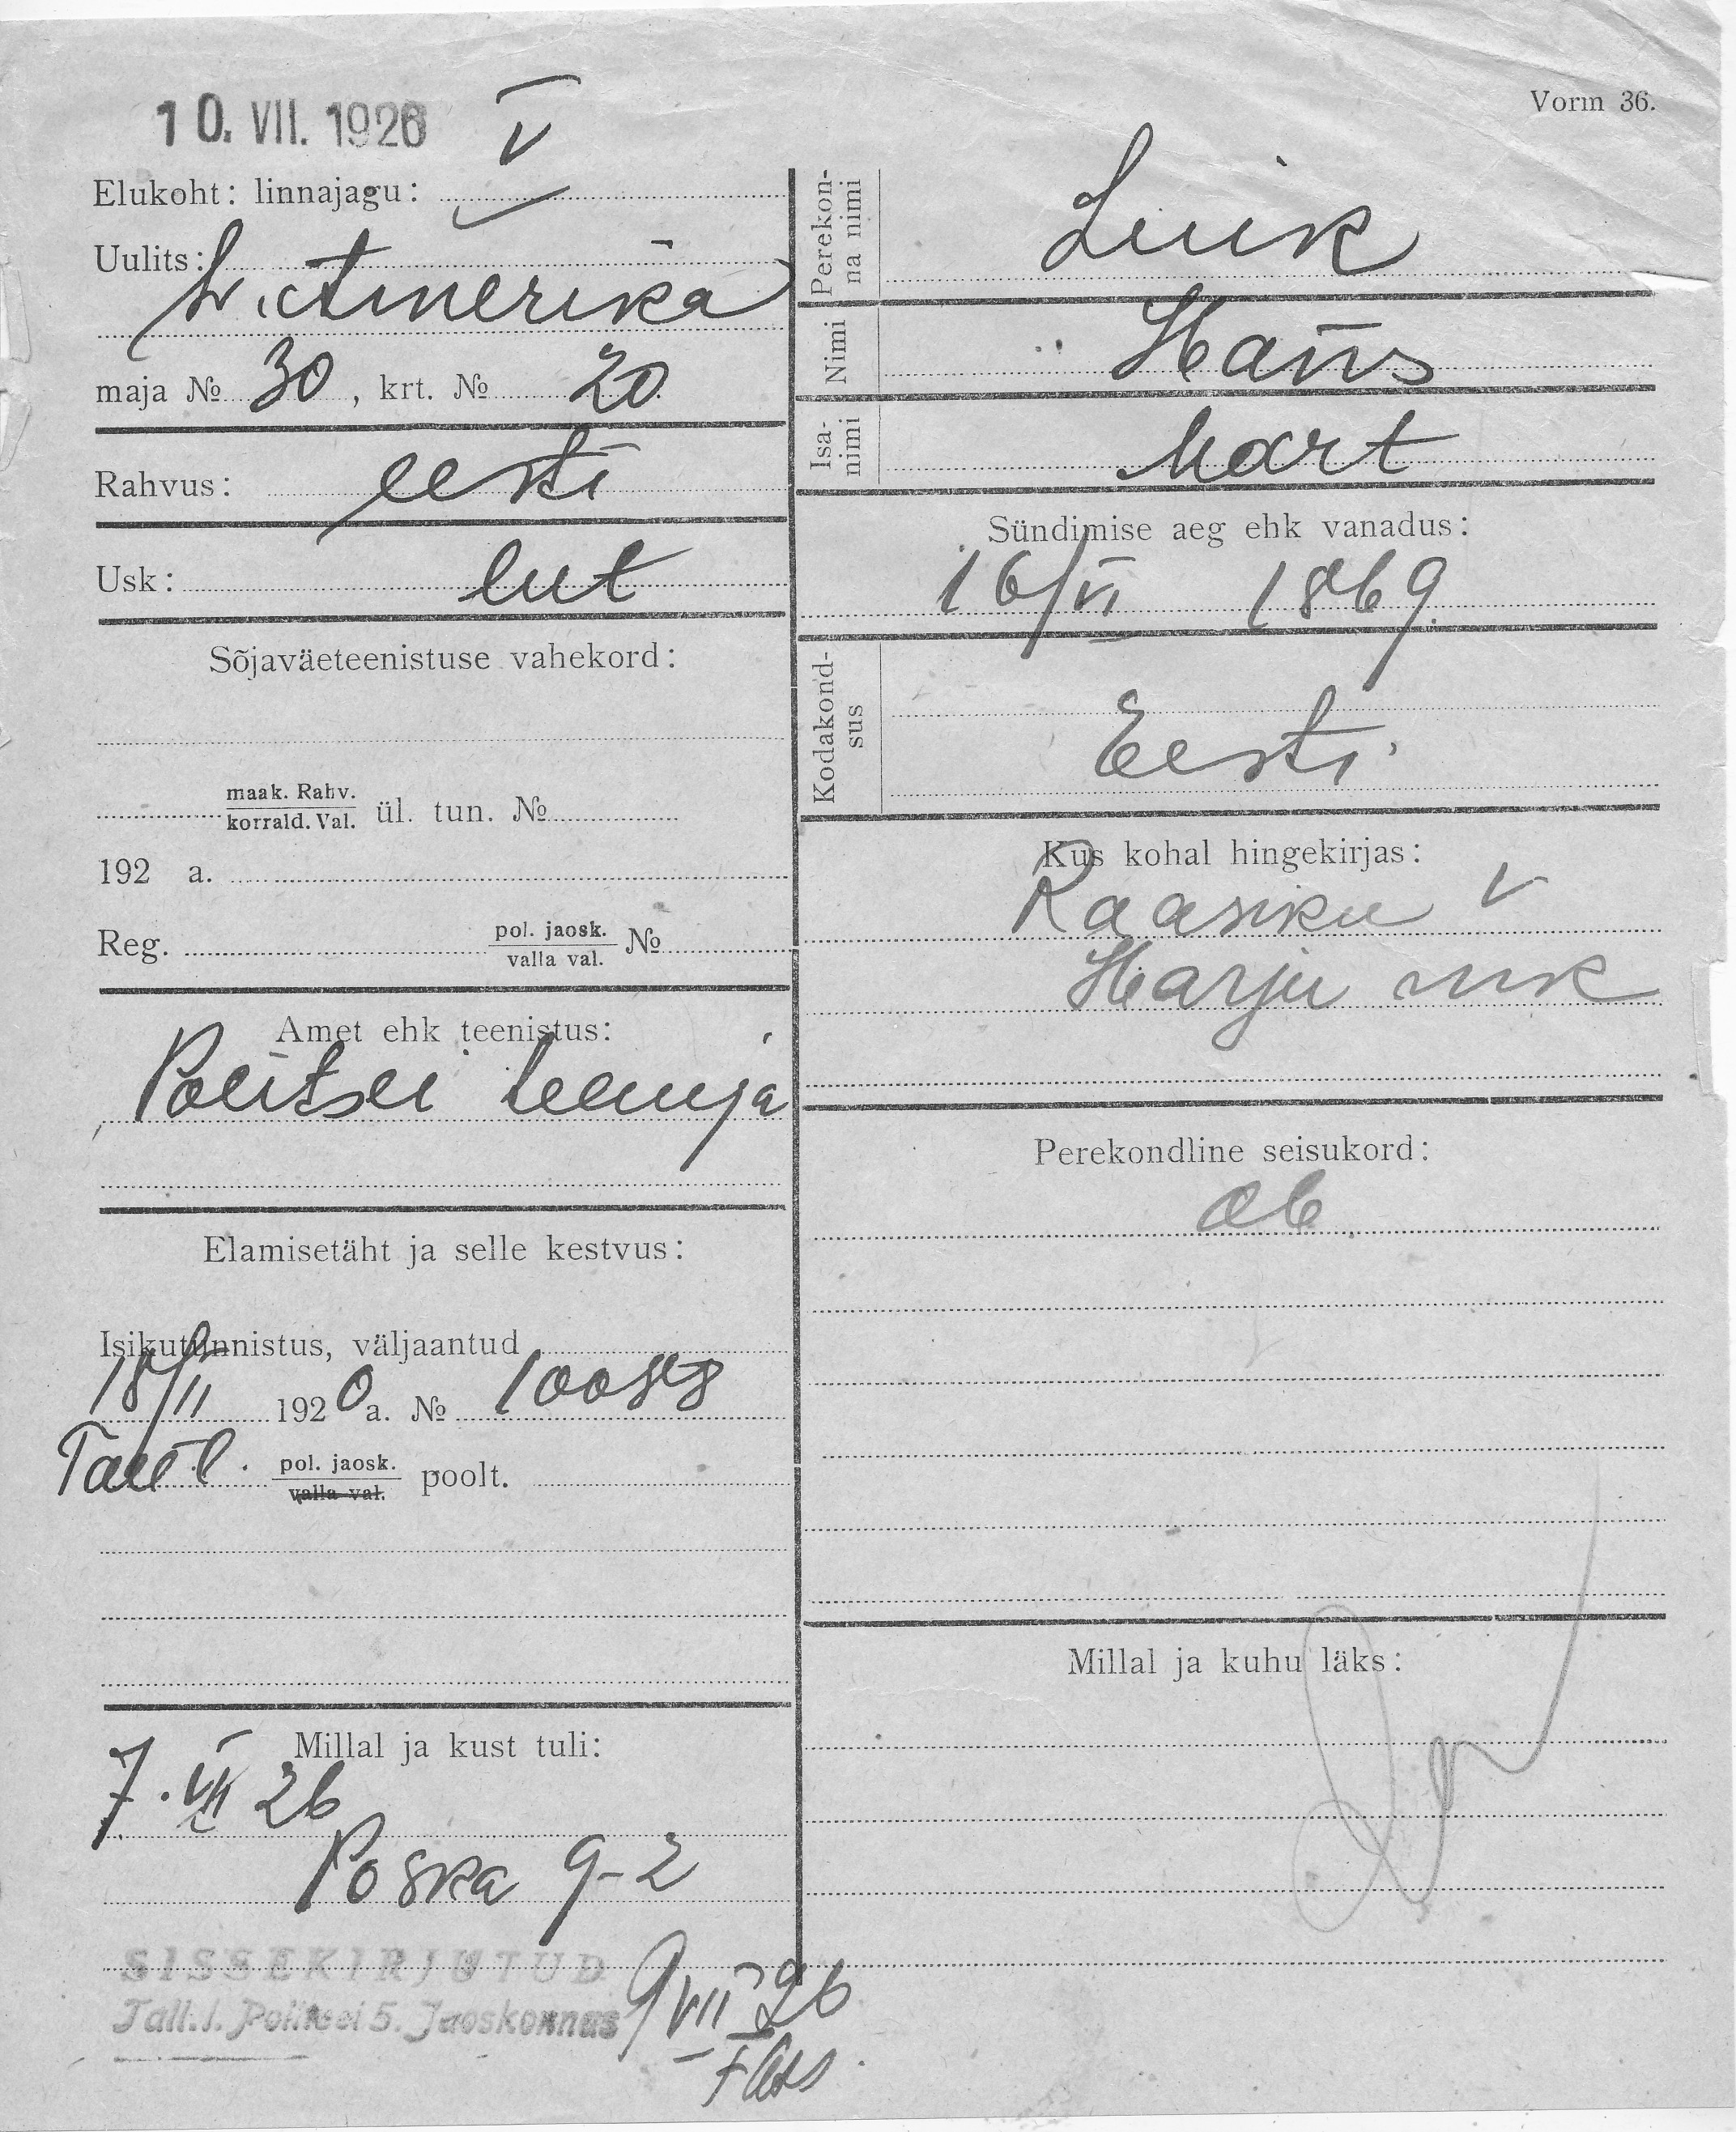 10. VII. 1926
Vorm 36.
Elukoht: linnajagu: V
Uulits:
L. Amerika
maja № 30, krt. № 20
Rahvus: eesti
Usk: lut
Sõjaväeteenistuse vahekord:
maak. Rahv.
korrald. Val. ül. tun. №
192 a.
Reg. pol. jaosk. №
valla val.
Amet ehk teenistus:
Politsei teenija
Elamisetäht ja selle kestvus:
Isikutunnistus, väljaantud
18/II 1920 a. №
Tall. l. pol. jaosk. poolt.
valla val.
Millal ja kust tuli:
7. VII 26
Poska 9-2
SISSEKIRJUTUD
Tall. l. Politsei 5. Jaoskonnas 9 VII 26
Perekonna nimi
Luik
Nimi
Hans
Isanimi
Mart
Sündimise aeg ehk vanadus:
16/VI 1869.
Kodakondsus
Eesti
Kus kohal hingekirjas:
Raasiku v
Harju mk
Perekondline seisukord:
ab
Millal ja kuhu läks: